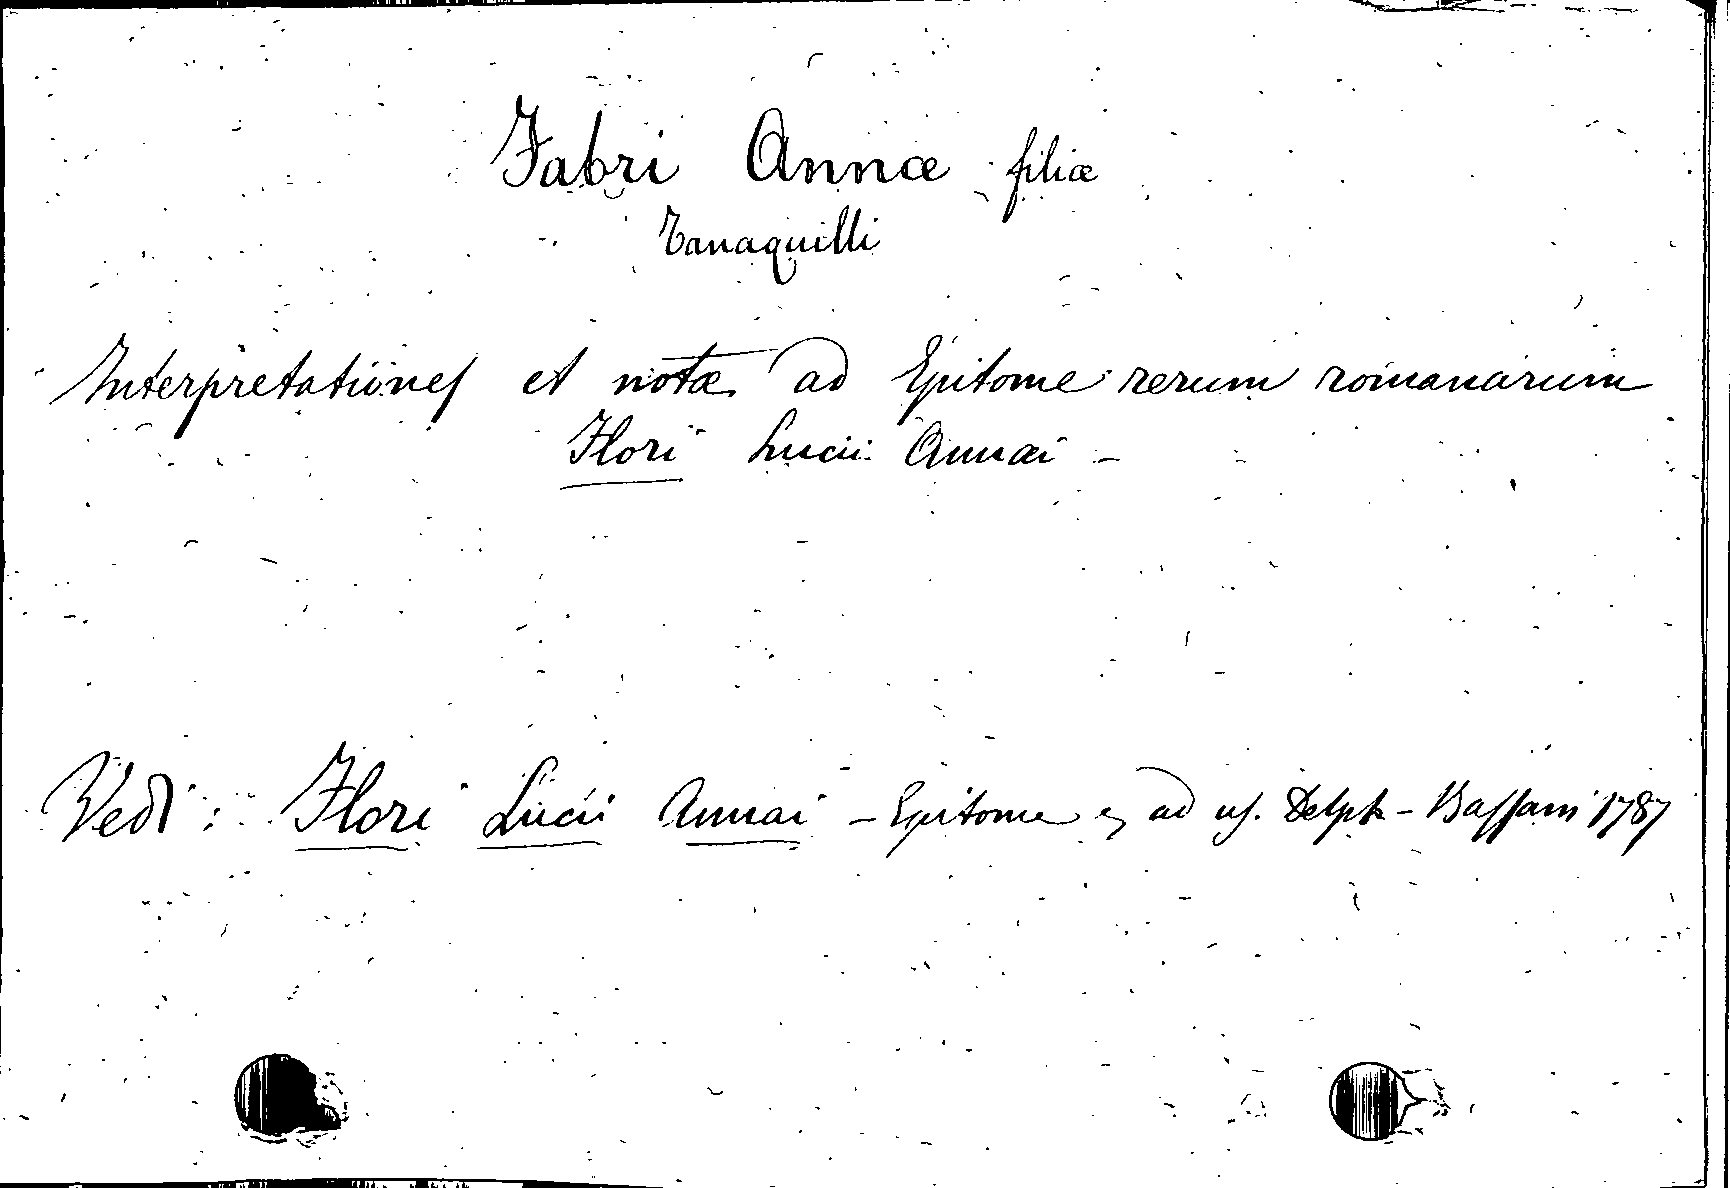 Fabri Annæ filiæ
Tanaquilli
Interpretationes et notæ ad Epitome rerum romanarum
Flori Lucii Annæi -
Vedi: Flori Lucii Annæi - Epitome ad us. Delph - Bassani 1787